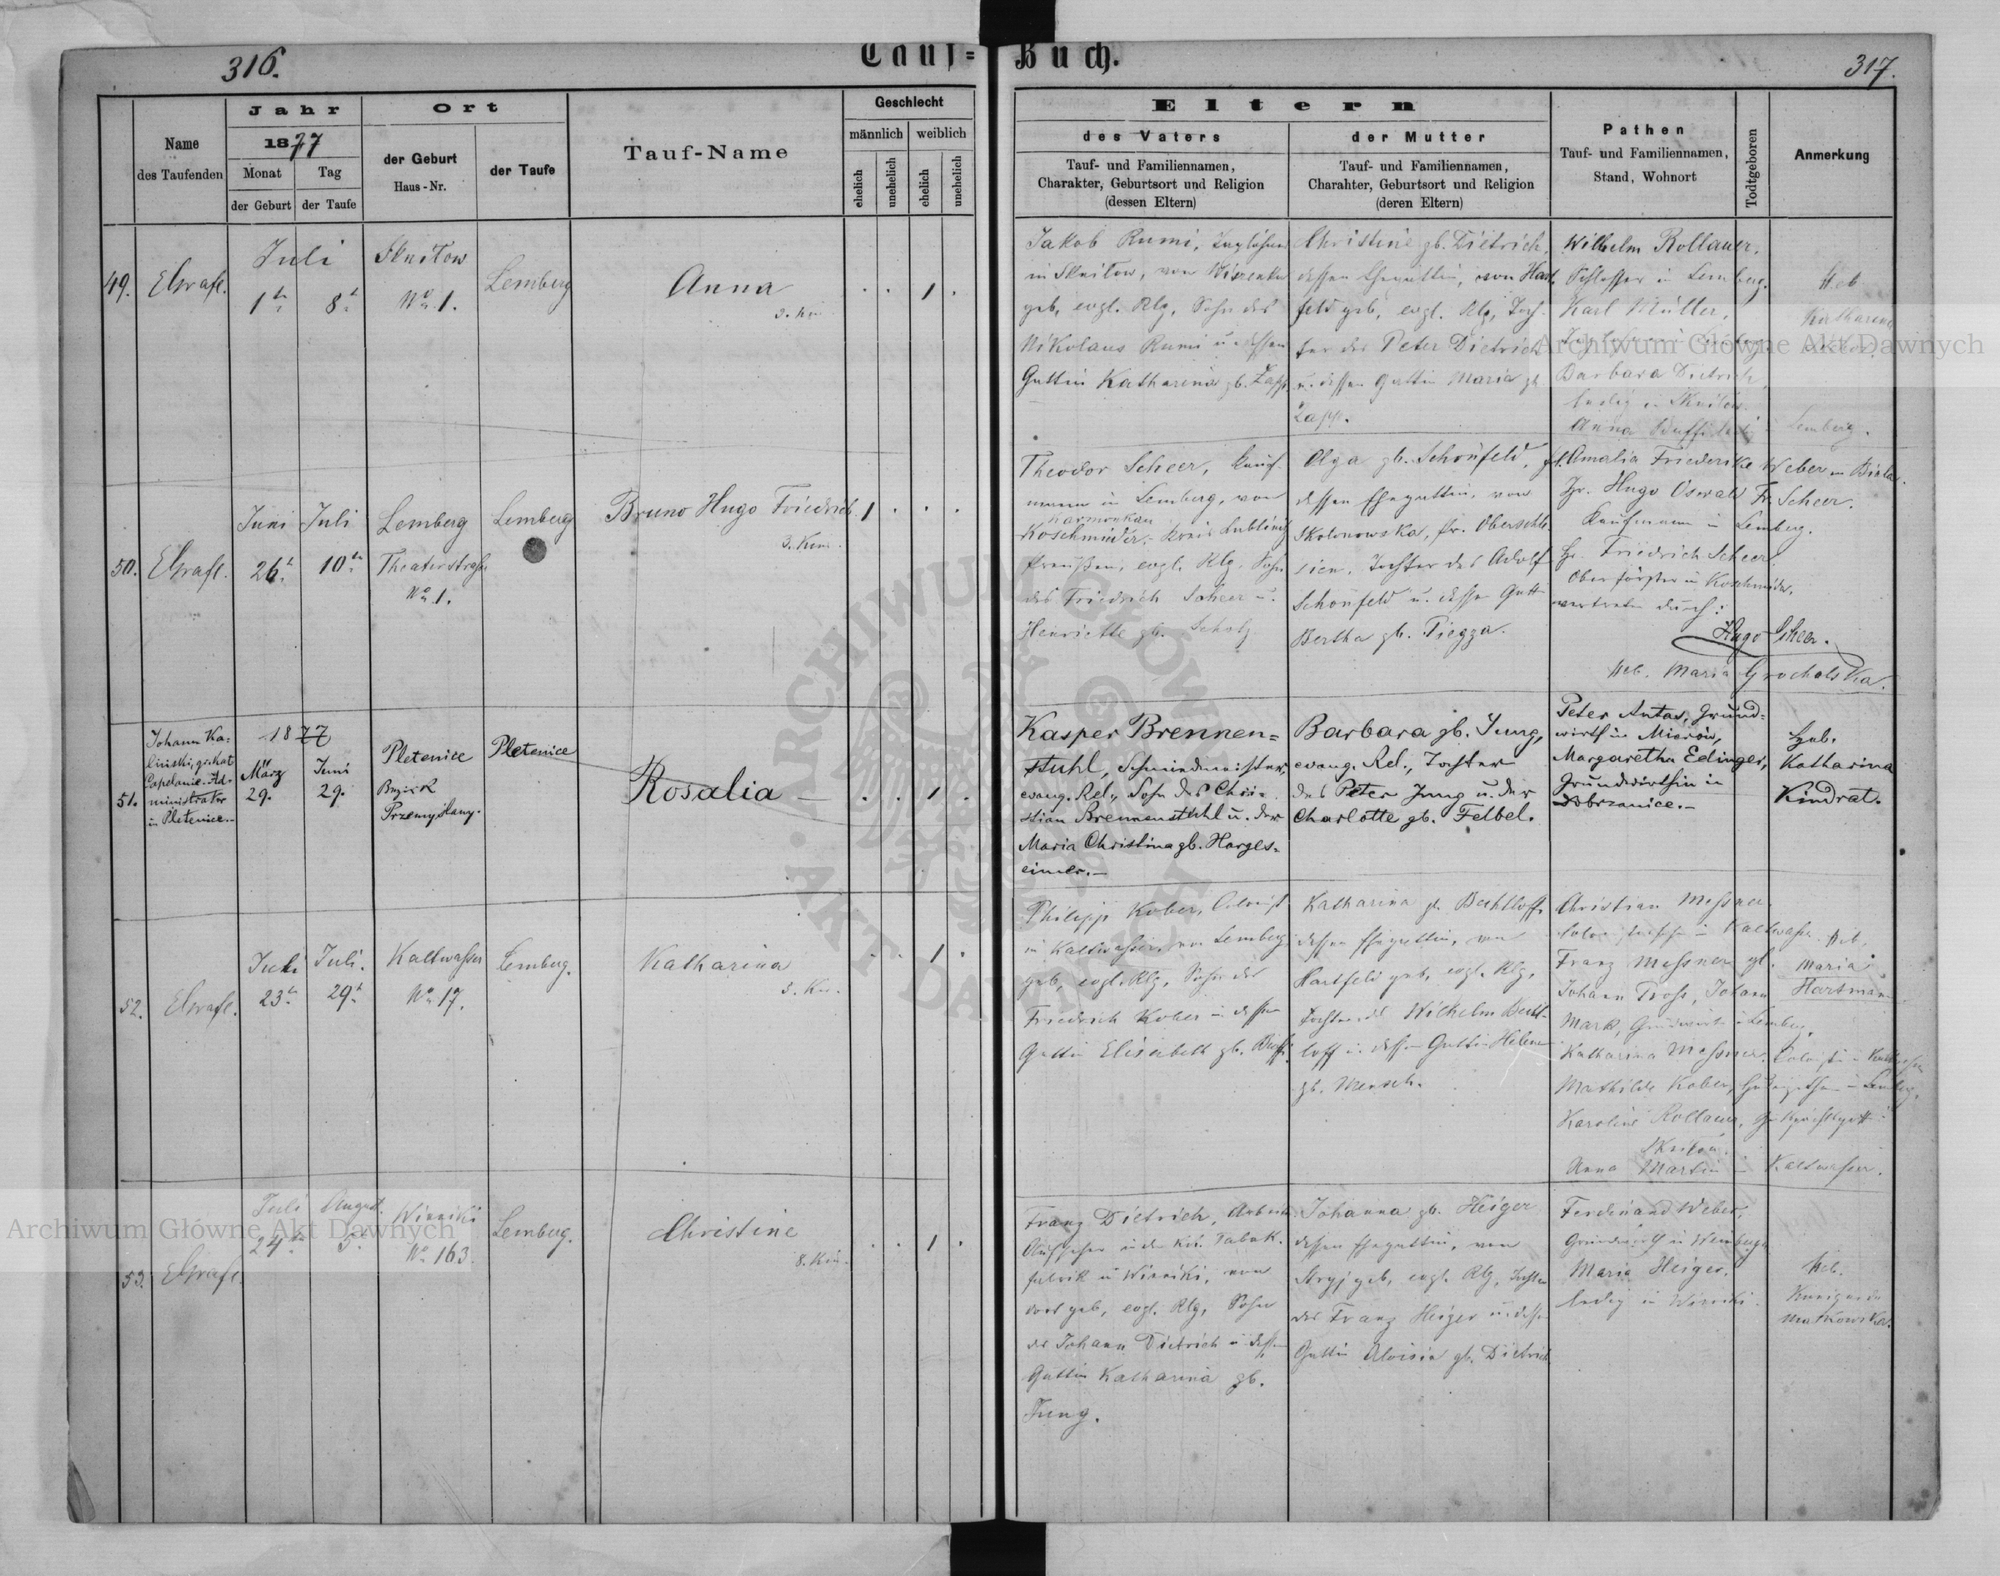 316.
Tauf=
Buch.
317.
Name
des Taufenden
Jahr
1877
Monat
Tag
der Geburt
der Taufe
Ort
der Geburt
Haus-Nr.
der Taufe
Tauf-Name
Geschlecht
männlich
weiblich
ehelich
unehelich
ehelich
unehelich
Eltern
des Vaters
Tauf- und Familiennamen,
Charakter, Geburtsort und Religion
(dessen Eltern)
der Mutter
Tauf- und Familiennamen,
Charahter, Geburtsort und Religion
(deren Eltern)
Pathen
Tauf- und Familiennamen,
Stand, Wohnort
Todtgeboren
Anmerkung
49.
Juli
1
8
Sknilow
No 1.
Lemberg
Anna
1
Jakob Rumi,
in Sknilow, von
geb, evgl. Rlg, Sohn des
Nikolaus Rumi u. dessen
Gattin Katharina gb. Zapp.
Christine gb. Dietrich,
dessen Ehegattin, von Hart
feld geb, evgl. Rlg, Toch-
ter des Peter Dietrich
u. dessen Gattin Maria gb
Zapp.
Wilhelm Rollauer,
Schlosser in Lemberg.
Karl Müller,
Barbara Dietrich,
ledig in Sknilow.
Anna
Lemberg.
Heb.
Katharina
50.
Juni
26
Juli
10
Lemberg
Theaterstraße
No 1.
Lemberg
Bruno Hugo Friedrich
1
Theodor Scheer, Kauf-
mann in Lemberg, von
Koschmieder, Kreis Lublinitz
Preußen, evgl. Rlg. Sohn
des Friedrich Scheer u.
Henriette gb. Scholz
Olga gb. Schönfeld,
dessen Ehegattin, von
Skolonowska, Pr. Oberschle
sien, Tochter des Adolf
Schönfeld u. dessen Gatt
Bertha gb. Piegza.
Amalia Friederike Weber in Biala.
Hr. Hugo Oswald Fr. Scheer.
Kaufmann in Lemberg.
Hr. Friedrich Scheer,
Oberförster in Koschmieder,
vertreten durch:
Hugo Scheer.
Heb. Maria Grocholska.
51.
Johann Ka-
linski, gr. kat
Capelanie-Ad-
ministrator
in Pletenice.-
1877
März
29.
Juni
29.
Pletenice
Bezirk
Przemyslany.
Pletenice
Rosalia
1
Kasper Brennen=
stuhl, Schmiedmeister,
evang. Rel., Sohn des Chri-
stian Brennenstuhl u. der
Maria Christina gb. Harges=
eimer.-
Barbara gb. Jung,
evang. Rel., Tochter
des Peter Jung u. der
Charlotte gb. Felbel.
Peter Antas, Grund=
wirth in
Margaretha Edinger,
Grundwirthin in
Dobrzanice.-
Heb.
Katharina
Kindrat.
52.
Juli
23
Juli.
29
Kaltwasser
No 17.
Lemberg.
Katharina
1
Philipp Kober, Colonist
in Kaltwasser, von Lemberg
geb, evgl. Rlg, Sohn des
Friedrich Kober u. dessen
Gattin Elisabeth gb.
Katharina gb. Bechtloff,
dessen Ehegattin, von
Hartfeld geb, evgl. Rlg,
Tochter des Wilhelm Becht-
loff u. dessen Gattin Helene
gb. Mensch.
Christian Messner
in Kaltwasser.
Franz Messner
Johann Pross, Johann
Mark, Grundwirth in Lemberg,
Katharina Messner,
Mathilde Kober,
Karoline Rollauer,
Sknilow.
Anna Martin in Kaltwasser.
Heb.
Maria
Hartmann
53.
Juli
24
August.
5
Winniki
No 163.
Lemberg.
Christine
1
Franz Dietrich,
Aufseher in der Tabak-
fabrik in Winniki, von
dort geb, evgl. Rlg, Sohn
des Johann Dietrich u. dessen
Gattin Katharina gb.
Jung.
Johanna gb. Heiger
dessen Ehegattin, von
Stryj geb, evgl. Rlg, Tochter
des Franz Heiger u. dessen
Gattin Aloisia gb. Dietrich
Ferdinand Weber,
Grundwirth in
Maria Heiger,
ledig in Winniki.
Heb.
Kunigunda
Matkowska.
Archiwum Główne Akt Dawnych
Archiwum Główne Akt Dawnych
ARCHIWUM GŁÓWNE AKT DAWNYCH